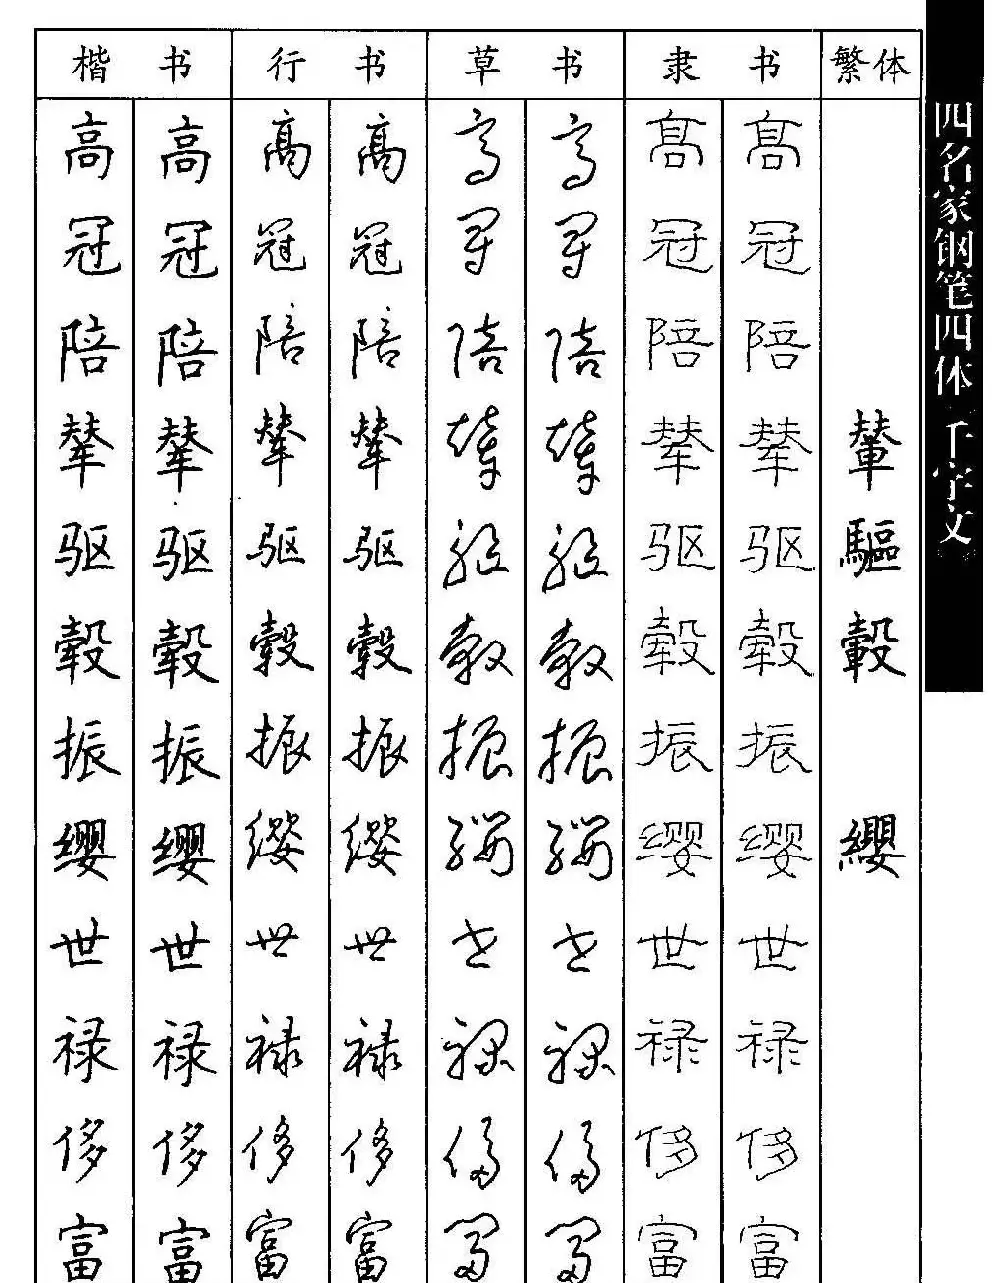 楷书 行书 草书 隶书 繁体
高 高 高 高 高 高 高 高
冠 冠 冠 冠 冠 冠 冠 冠
陪 陪 陪 陪 陪 陪 陪 陪
辇 辇 辇 辇 辇 辇 辇 辇 輦
驱 驱 驱 驱 驱 驱 驱 驱 驅
毂 毂 毂 毂 毂 毂 毂 毂 轂
振 振 振 振 振 振 振 振
缨 缨 缨 缨 缨 缨 缨 缨 纓
世 世 世 世 世 世 世 世
禄 禄 禄 禄 禄 禄 禄 禄
侈 侈 侈 侈 侈 侈 侈 侈
富 富 富 富 富 富 富 富
四名家钢笔四体千字文